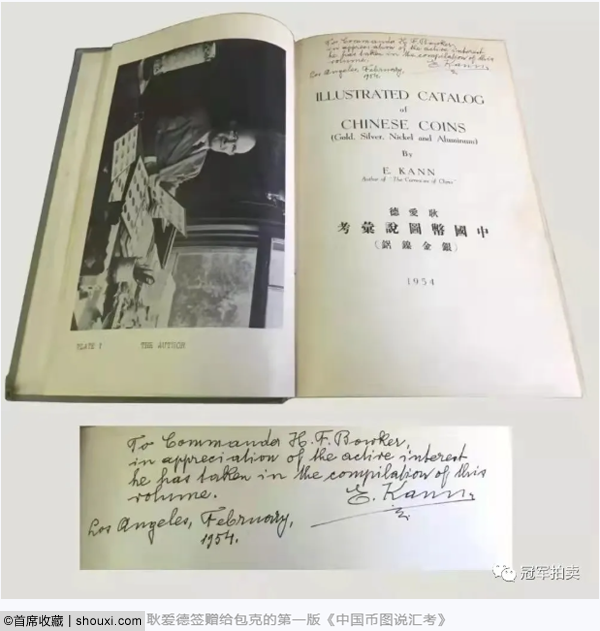 To Commander H. F. Bowker,
in appreciation of the active interest
he has taken in the compilation of this
volume.
E. Kann
Los Angeles, February,
1954.
ILLUSTRATED CATALOG
of
CHINESE COINS
(Gold, Silver, Nickel and Aluminum)
By
E. KANN
Author of "The Currencies of China"
耿愛德
中國幣圖說彙考
(銀金鎳鋁)
1954
PLATE I THE AUTHOR
To Commander H. F. Bowker,
in appreciation of the active interest
he has taken in the compilation of this
volume.
E. Kann
Los Angeles, February,
1954.
冠军拍卖
©首席收藏 | shouxi.com 耿爱德签赠给包克的第一版《中国币图说汇考》